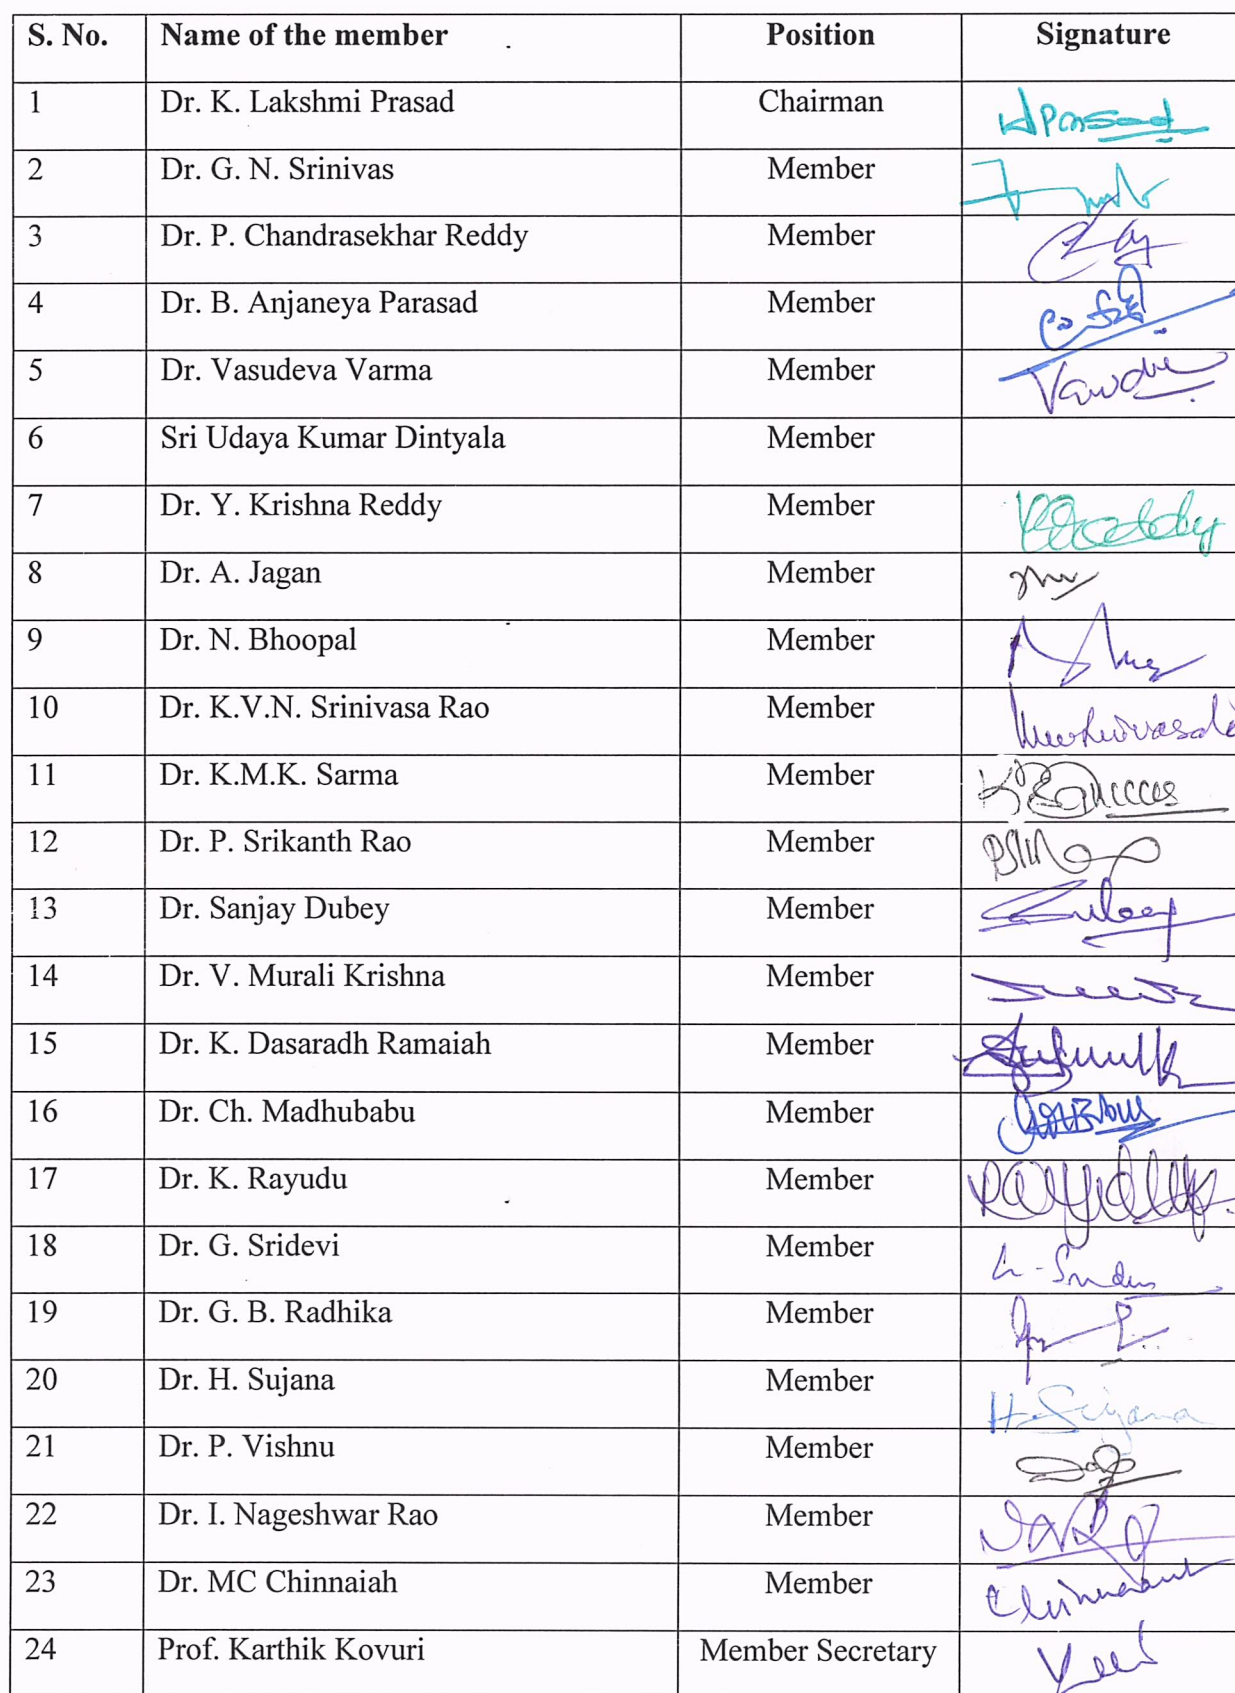 S. No. Name of the member Position Signature
1 Dr. K. Lakshmi Prasad Chairman
2 Dr. G. N. Srinivas Member
3 Dr. P. Chandrasekhar Reddy Member
4 Dr. B. Anjaneya Parasad Member
5 Dr. Vasudeva Varma Member
6 Sri Udaya Kumar Dintyala Member
7 Dr. Y. Krishna Reddy Member
8 Dr. A. Jagan Member
9 Dr. N. Bhoopal Member
10 Dr. K.V.N. Srinivasa Rao Member
11 Dr. K.M.K. Sarma Member
12 Dr. P. Srikanth Rao Member
13 Dr. Sanjay Dubey Member
14 Dr. V. Murali Krishna Member
15 Dr. K. Dasaradh Ramaiah Member
16 Dr. Ch. Madhubabu Member
17 Dr. K. Rayudu Member
18 Dr. G. Sridevi Member
19 Dr. G. B. Radhika Member
20 Dr. H. Sujana Member H. Sujana
21 Dr. P. Vishnu Member
22 Dr. I. Nageshwar Rao Member
23 Dr. MC Chinnaiah Member
24 Prof. Karthik Kovuri Member Secretary